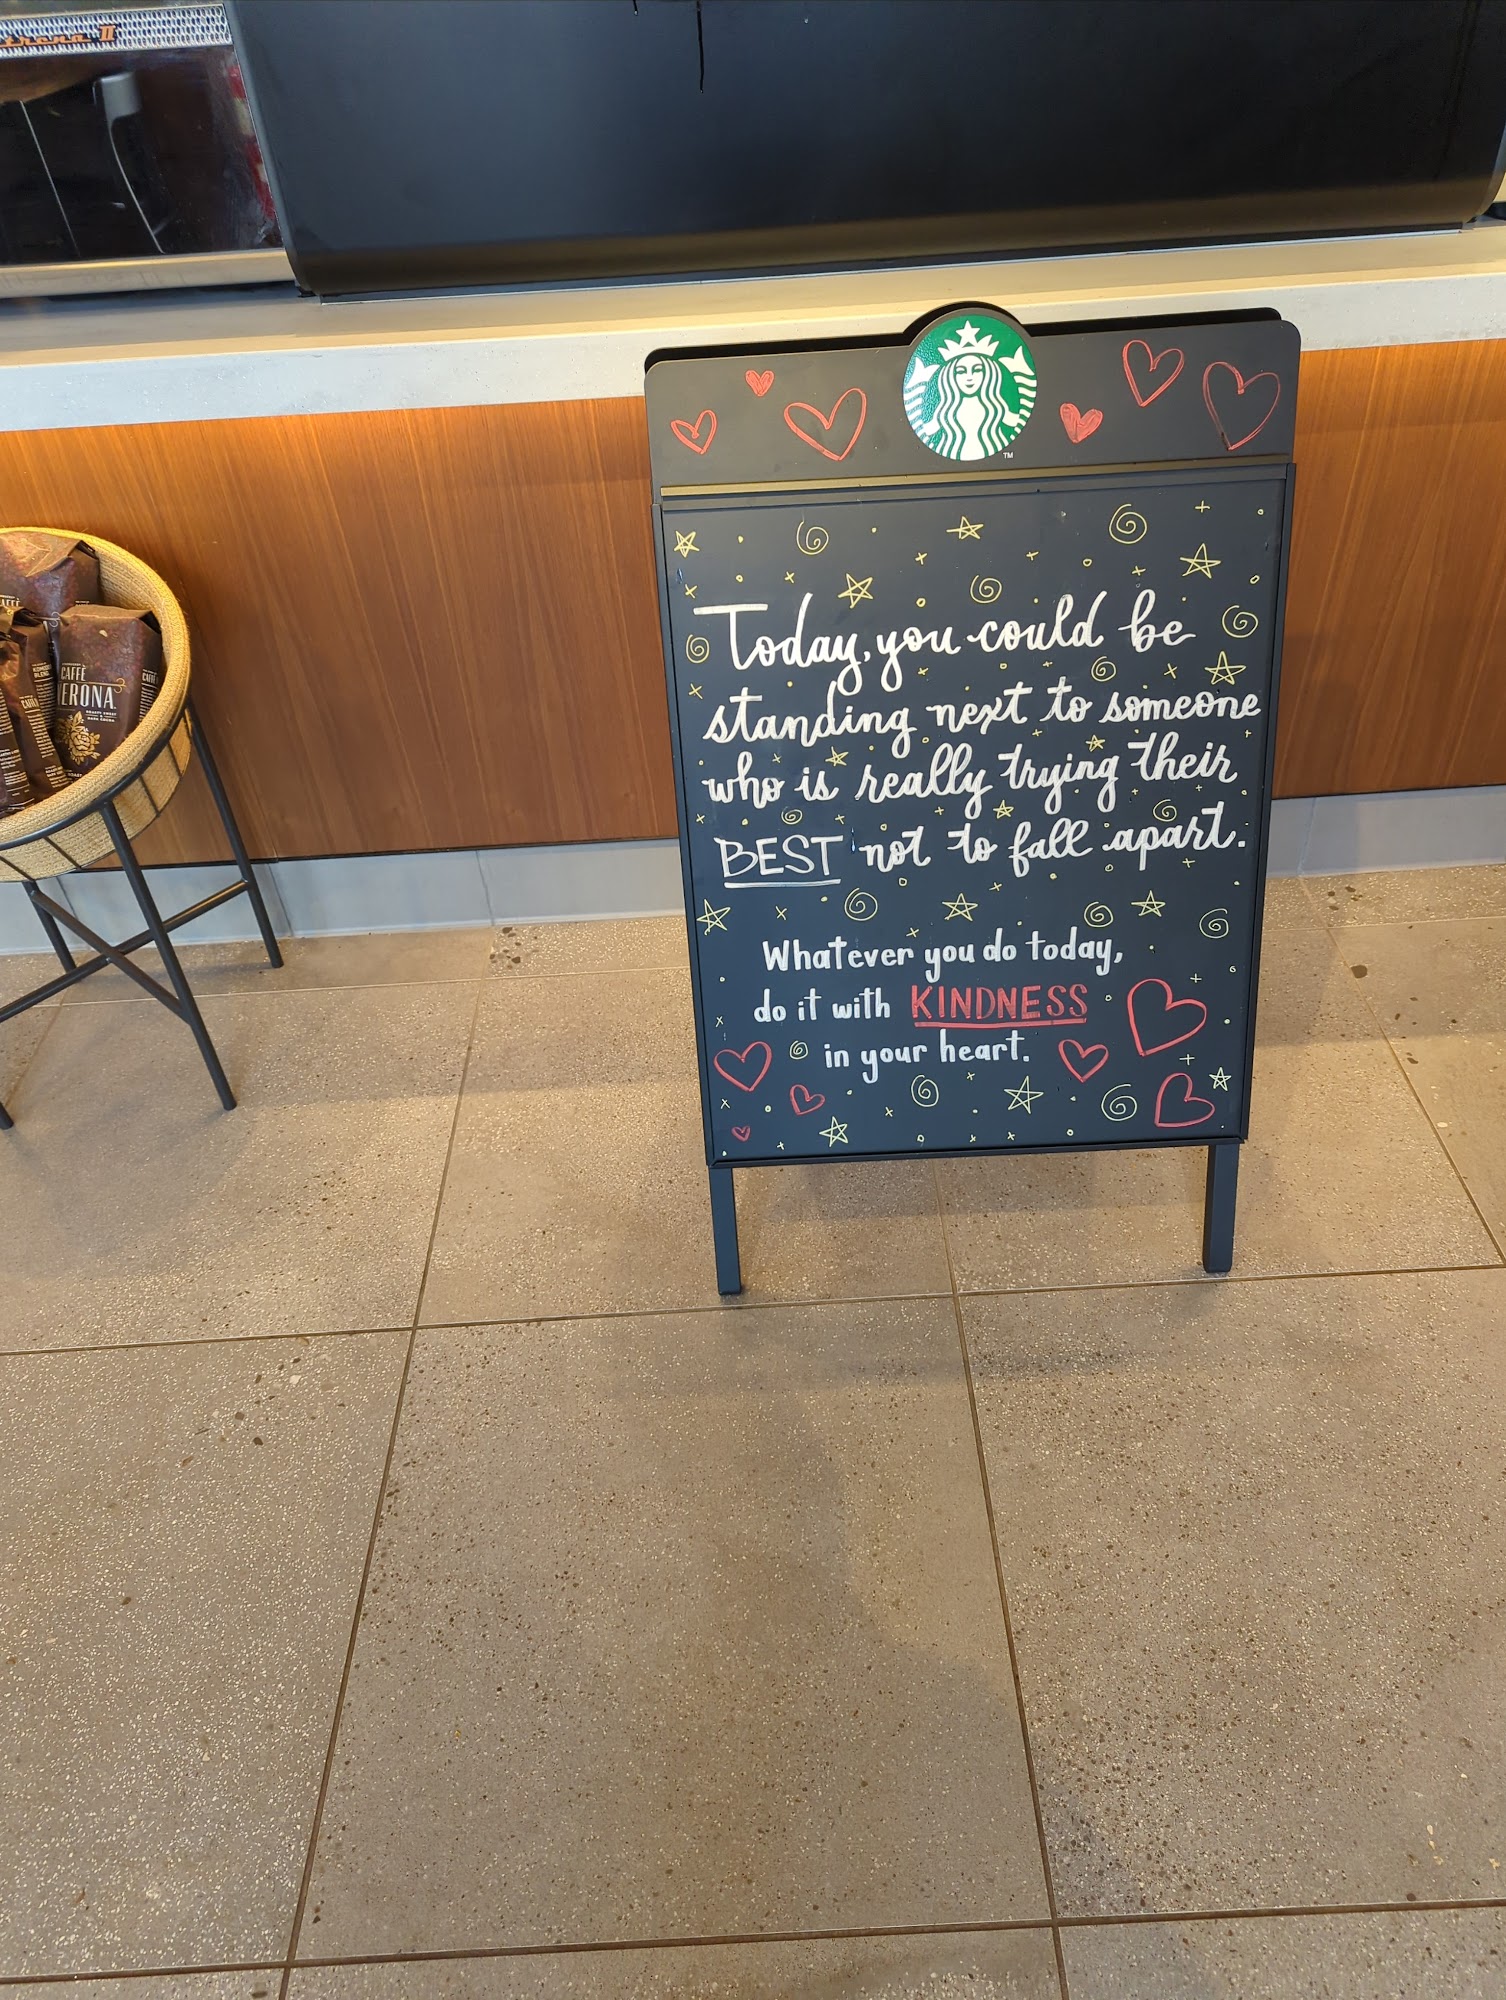 II
TM
Today, you could be
standing next to someone
who is really trying their
BEST not to fall apart.
Whatever you do today,
do it with KINDNESS
in your heart.
CAFFÈ
VERONA
KOMODO
BLEND
CAFFÈ